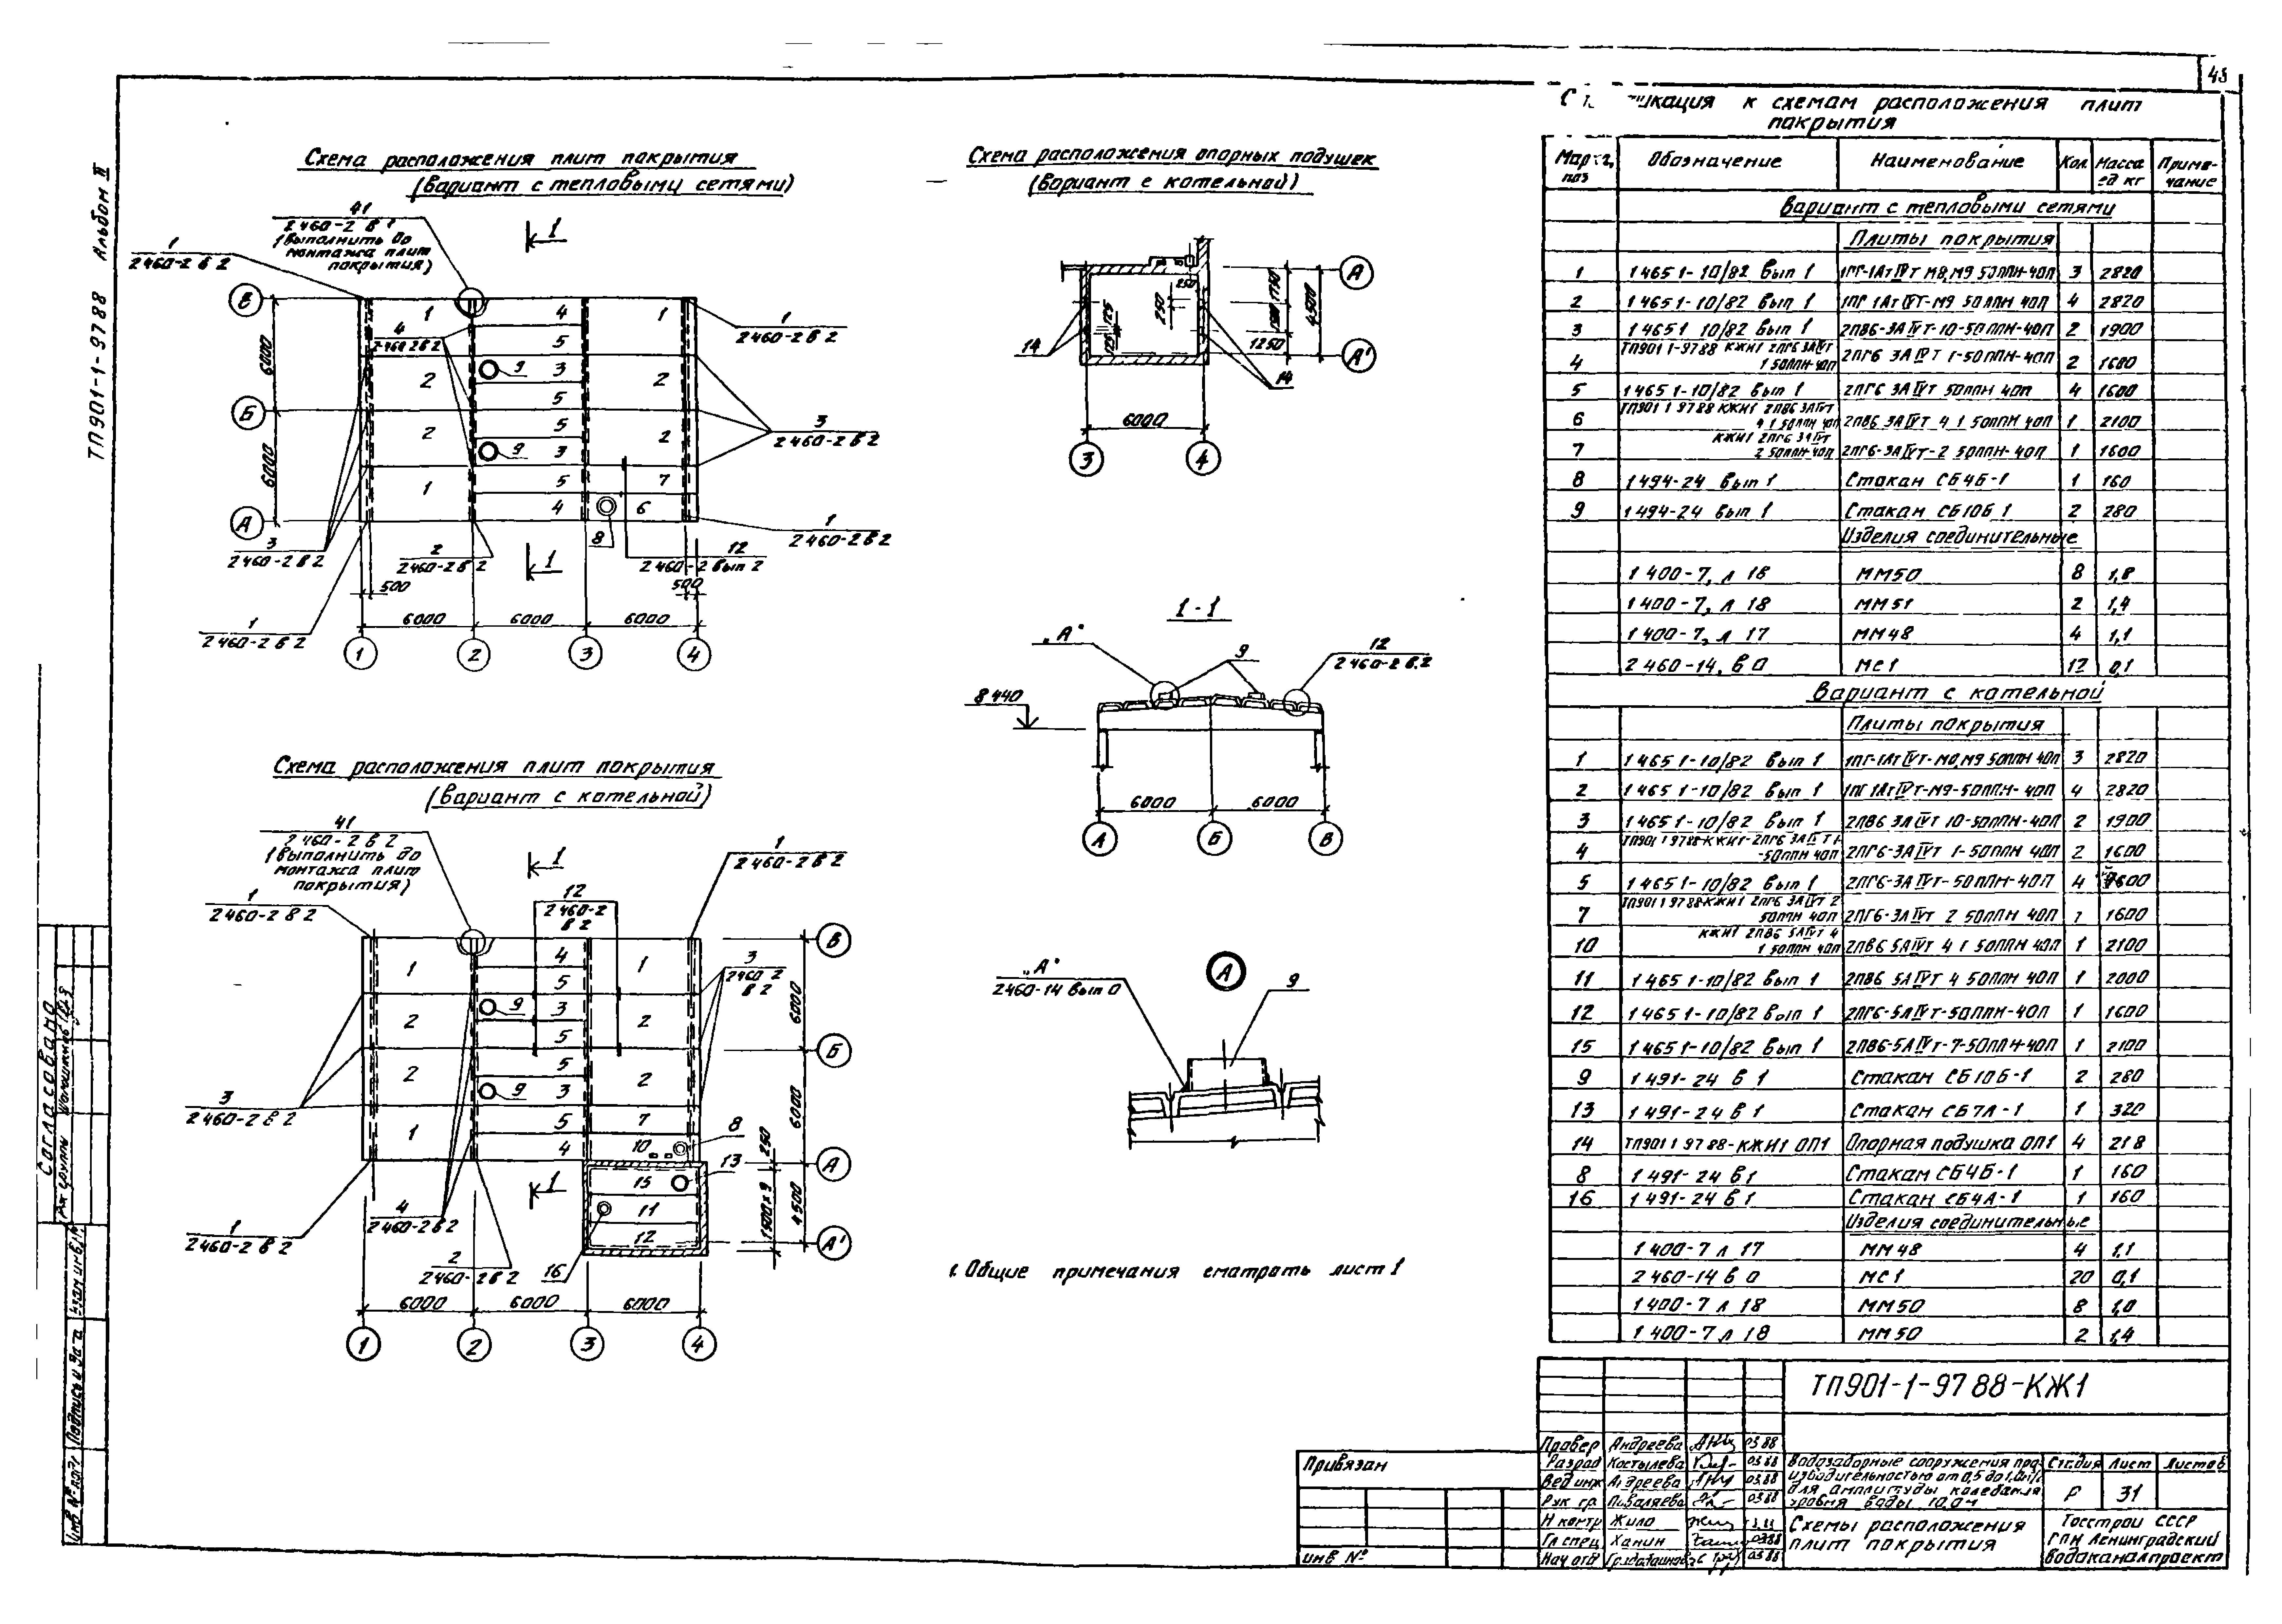 43
ТП901-1-97 88 Альбом II
Схема расположения плит покрытия
(вариант с тепловыми сетями)
41
2 460-2 в 1
(выполнить до
монтажа плит
покрытия)
1
2 460-2 в 2
4
2 460 2 в 2
1
2 460-2 в 2
3
2 460-2 в 2
1
2 460-2 в 2
12
2 460-2 вып 2
2
2 460-2 в 2
3
2 460-2 в 2
1
2 460-2 в 2
1 4 1
5
2 9 3 2
5
2 5 2
9 3
1 5 7
4 6
8
1
1
Б
А
6000
6000
500
500
6000 6000 6000
1 2 3 4
Схема расположения опорных подушек
(вариант с котельной)
А
А'
14
14
250
250
1250
4500
6000
3 4
1-1
„А"
9
12
2 460-2 в.2
8 440
6000 6000
А Б В
А
„А"
2460-14 вып 0
9
1. Общие примечания сматрать лист 1
Схема расположения плит покрытия
(вариант с котельной)
41
2 460-2 в 2
(выполнить до
монтажа плит
покрытия)
1
2 460-2 в 2
12
2 460-2
в 2
1
2 460-2 в 2
3
2460 2
в 2
3
2 460-2 в 2
4
2 460-2 в 2
1
2 460-2 в 2
2
2 460-2 в 2
16
1 4 1
5
2 9 3 2
5
2 5 2
9 3
1 5 7
4 10
8
13
15
11
12
1
1
В
Б
А
А'
6000
6000
250
4500
6000 6000 6000
1 2 3 4
кация к схемам расположения плит
покрытия
Марка, поз Обозначение Наименование Кол. Масса ед кг Приме-чание
Вариант с тепловыми сетями
Плиты покрытия
1 1 465 1-10/82 вып 1 1ПГ-1АтIVт М8,М9 50ППН-40П 3 2820
2 1 465 1-10/82 вып 1 1ПГ 1АтIVТ-М9 50 ППН 40П 4 2820
3 1 465 1 10/82 вып 1 2ПВ6-3АIVт-10-50 ППН-40П 2 1900
4 ТП901 1-97 88 КЖИ1 2ПГ6 3АIVт 1 50ППН-40П 2ПГ6 3АIVТ 1-50ППН-40П 2 1600
5 1 465 1-10/82 вып 1 2ПГ6 3АIVт 50ППН 40п 4 1600
6 ТП901 1 97 88 КЖИ1 2ПВ6 3АIVт 4 1 50ППН 40П 2ПВ6 3АIVт 4 1 50ППН 40П 1 2100
7 КЖИ1 2ПГ6 3АIVт 2 50ППН-40П 2ПГ6-3АIVт-2 50ППН-40П 1 1600
8 1 494-24 вып 1 Стакан СБ4Б-1 1 160
9 1 494-24 вып 1 Стакан СБ10Б 1 2 280
Изделия соединительные
1 400-7, л 18 ММ50 8 1,8
1 400-7, л 18 ММ51 2 1,4
1 400-7, л 17 ММ48 4 1,1
2 460-14, в 0 МС1 12 0,1
Вариант с котельной
Плиты покрытия
1 1 465 1-10/82 вып 1 1ПГ-1АтIVт-М8,М9 50ППН 40П 3 2820
2 1 465 1-10/82 вып 1 1ПГ 1АтIVт-М9-50ППН-40П 4 2820
3 1 465 1-10/82 вып 1 2ПВ6 3АIVт 10-50ППН-40П 2 1900
4 ТП901 1 97 88-КЖИ1-2ПГ6 3АIVТ1-50ППН 40П 2ПГ6-3АIVт 1-50ППН 40П 2 1600
5 1 465 1-10/82 вып 1 2ПГ6-3АIVт-50ППН-40П 4 1600
7 ТП901 1 97 88-КЖИ1 2ПГ6 3АIVт 2 50ППН 40П 2ПГ6-3АIVт 2 50ППН 40П 1 1600
10 КЖИ1 2ПВ6 5АIVт 4 1 50ППН 40П 2ПВ6 5АIVт 4 1 50ППН 40П 1 2100
11 1 465 1-10/82 вып 1 2ПВ6 5АIVт 4 50ППН 40П 1 2000
12 1 465 1-10/82 вып 1 2ПГ6-5АIVт-50ППН-40П 1 1600
15 1 465 1-10/82 вып 1 2ПВ6-5АIVт-7-50ППН-40П 1 2100
9 1 491-24 в 1 Стакан СБ10Б-1 2 280
13 1 491-24 в 1 Стакан СБ7А-1 1 320
14 ТП901 1 97 88-КЖИ1 ОП1 Опорная подушка ОП1 4 21 8
8 1 491-24 в 1 Стакан СБ4Б-1 1 160
16 1 491-24 в 1 Стакан СБ4А-1 1 160
Изделия соединительные
1 400-7 л 17 ММ48 4 1,1
2 460-14 в 0 МС1 20 0,1
1 400-7 л 18 ММ50 8 1,8
1 400-7 л 18 ММ50 2 1,4
ТП901-1-97 88-КЖ1
Провер Андреева 03 88
Разраб Костылева 03 88
Вед инж Андреева 03 88
Рук гр. 03 88
Н контр Жило
Гл спец Ханин 03 88
Нач отд 03 88
Водозаборные сооружения про-
изводительностью от 0,5 до
для амплитуды колебания
уровня воды 10,0м
Стадия Лист Листов
Р 31
Схемы расположения
плит покрытия
Госстрой СССР
ГПИ Ленинградский
Водоканалпроект
Привязан
инв №
Согласовано
Рук группы
Взам инв №
Подпись и дата
Инв № подл